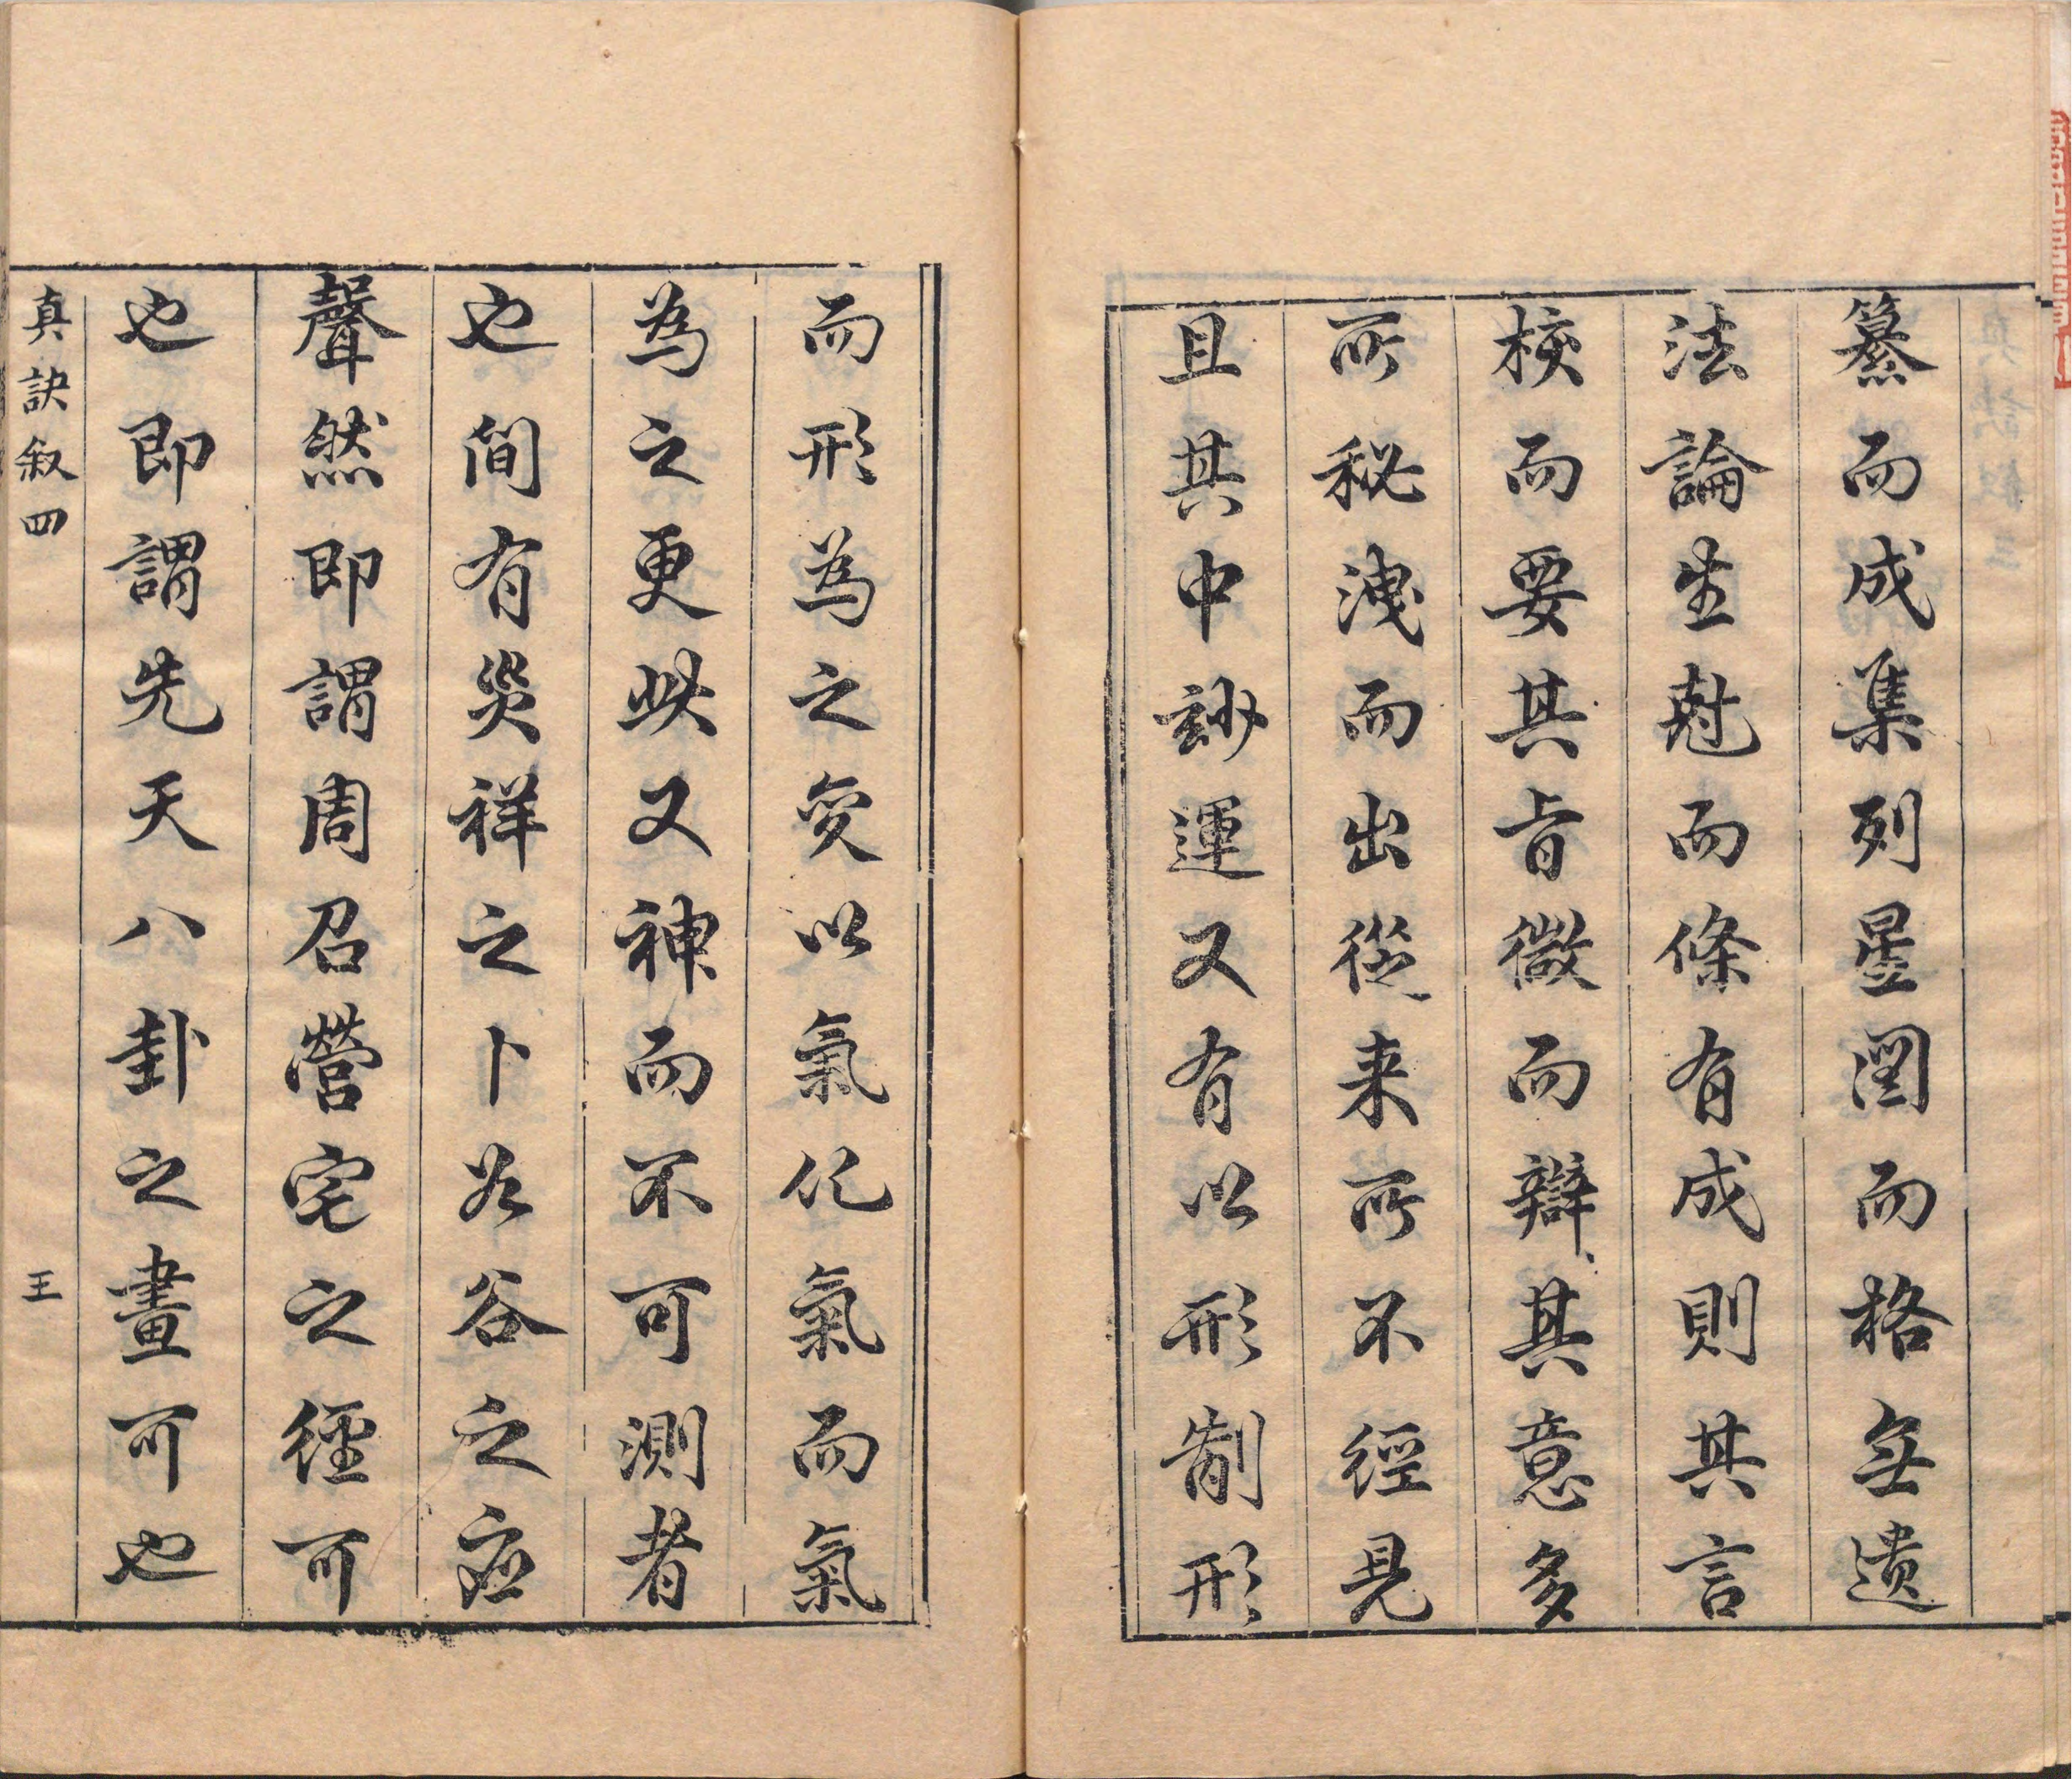 纂而成集列星圖而格無遺
法論生尅而條有成則其言
校而要其旨微而辯其意多
所秘洩而出從来所不經見
且其中玅運又有以形制形
而形為之變以氣化氣而氣
為之更此又神而不可測者
也間有災祥之卜如谷之應
聲然即謂周召營宅之經可
也即謂先天八卦之畫可也
真訣叙四
王